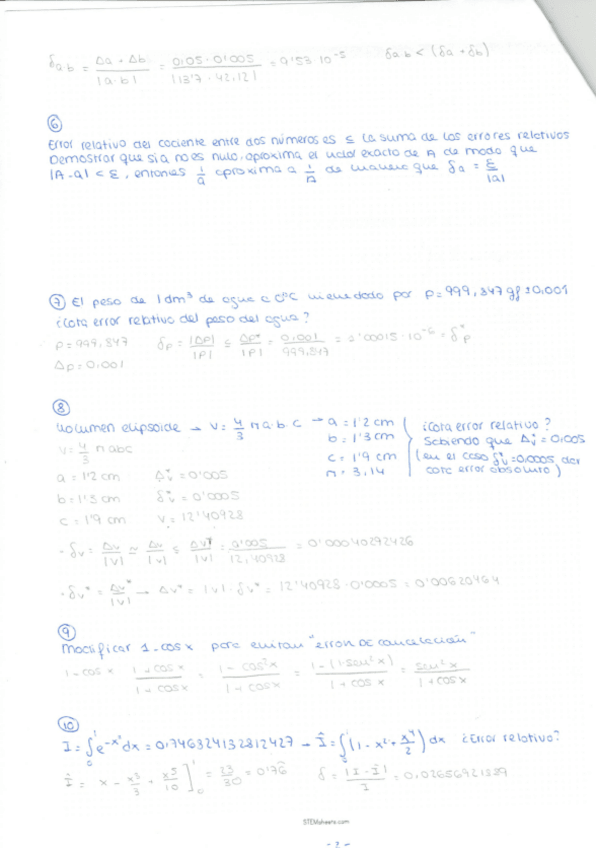 δa·b = Δa + Δb / |a·b| = 0,05 · 0'005 / |13'7 · 42,12| = 9'53 · 10⁻⁵ δa·b < (δa + δb)
⑥
Error relativo del cociente entre dos números es ≤ la suma de los errores relativos
Demostrar que si a no es nulo, aproxima el valor exacto de A de modo que
|A - a| < Ɛ, entonces 1/a aproxima a 1/A de manera que δa = Ɛ/|a|
⑦ El peso de 1 dm³ de agua a 0°C viene dado por p = 999,847 gf ± 0,001
¿Cota error relativo del peso del agua?
p = 999,847 δp = |Δp| / |p| ≤ Δp* / |p| = 0,001 / 999,847 = 1'00015 · 10⁻⁶ = δp*
Δp = 0,001
⑧
Volumen elipsoide → V = 4/3 π a b c → a = 1'2 cm ¿Cota error relativo?
b = 1'3 cm Sabiendo que Δv* = 0,005
V = 4/3 π abc c = 1'9 cm (en el caso δv* = 0,0005, dar
π = 3,14 cota error absoluto)
a = 1'2 cm Δv* = 0'005
b = 1'3 cm δv* = 0'0005
c = 1'9 cm V = 12'40928
· δv = Δv / |v| ≃ Δv / |v| ≤ Δv* / |v| = 0'005 / 12,40928 = 0'00040292426
· δv* = Δv* / |v| → Δv* = |v| · δv* = 12'40928 · 0'0005 = 0'00620464
⑨
Modificar 1 - cos x para evitar "error de cancelación"
1 - cos x · 1 + cos x / 1 + cos x = 1 - cos²x / 1 + cos x = 1 - (1 - sen²x) / 1 + cos x = sen²x / 1 + cos x
⑩
I = ∫₀¹ e^-x² dx = 0,746324132812427 → Î = ∫₀¹ (1 - x² + x⁴/2) dx ¿Error relativo?
Î = x - x³/3 + x⁵/10 ]₀¹ = 23/30 = 0'76 δ = |I - Î| / I = 0,02656921389
STEMsheets.com
- 2 -